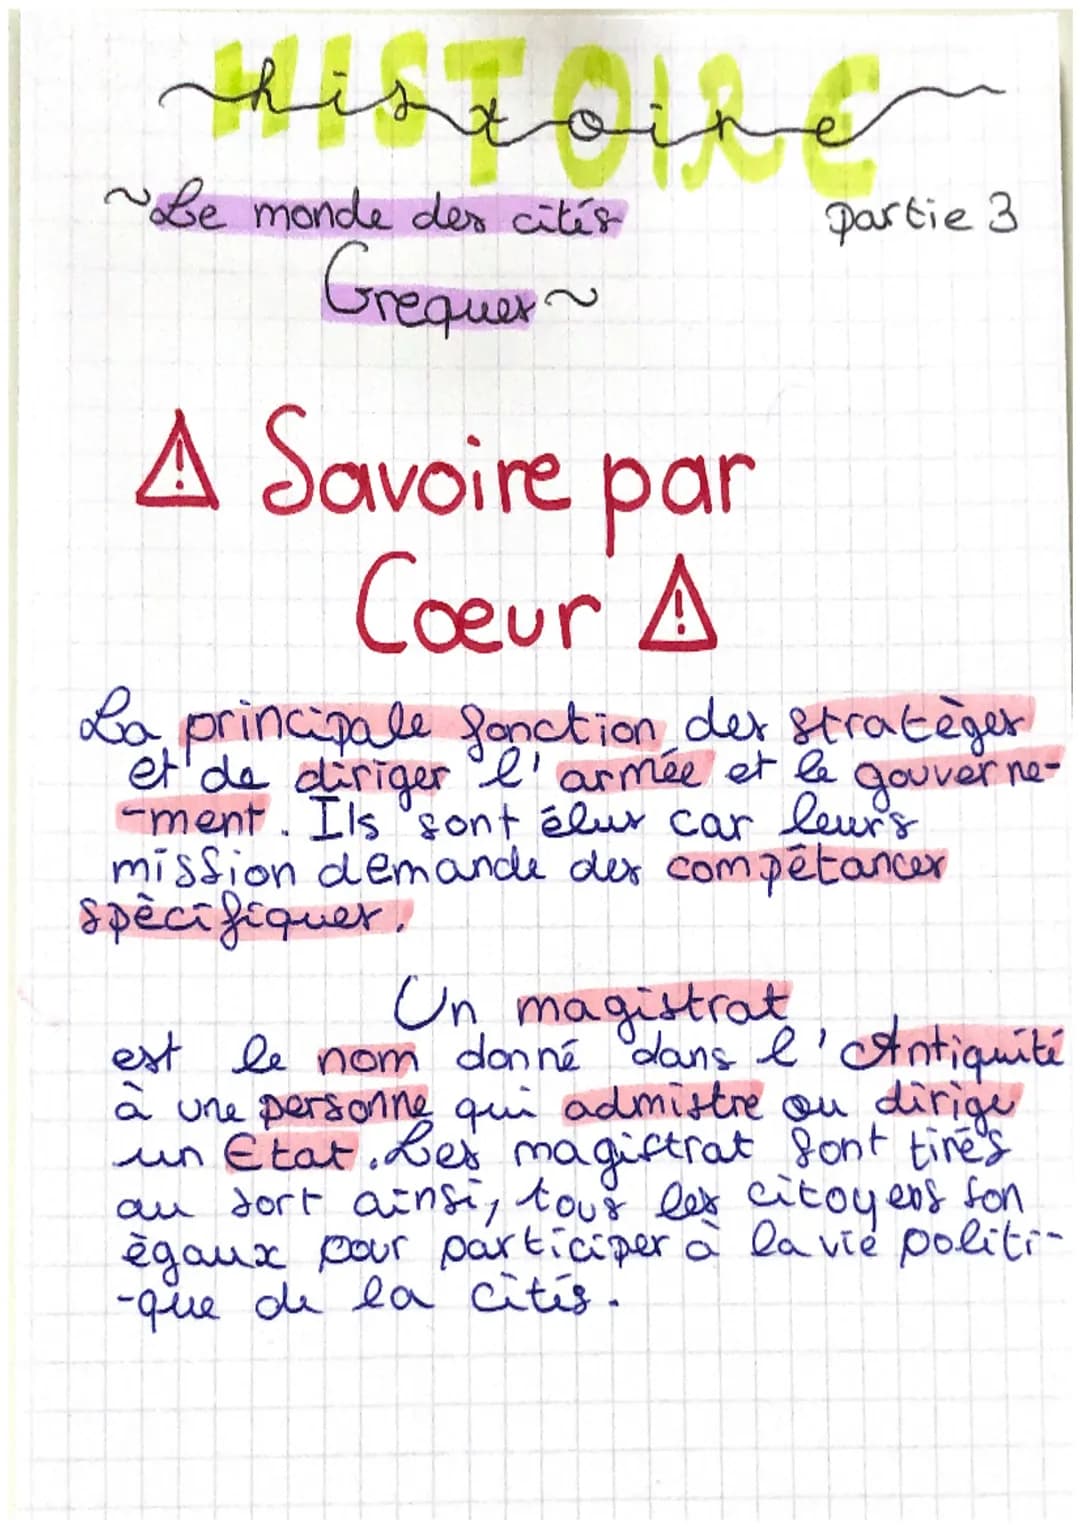 HISTOIRE
histoire
~Le monde des cités
partie 3
Greques~
⚠ Savoire par
Cœur ⚠
La principale fonction des stratèges
et de diriger l'armée et le gouverne-
-ment. Ils sont élus car leurs
mission demande des compétances
spècifiques.
Un magistrat
est le nom donné dans l'Antiquité
à une personne qui admistre ou dirige
un Etat. Les magistrat sont tirés
au sort ainsi, tous les citoyens son
ègaux pour participer à la vie politi-
-que de la cités.